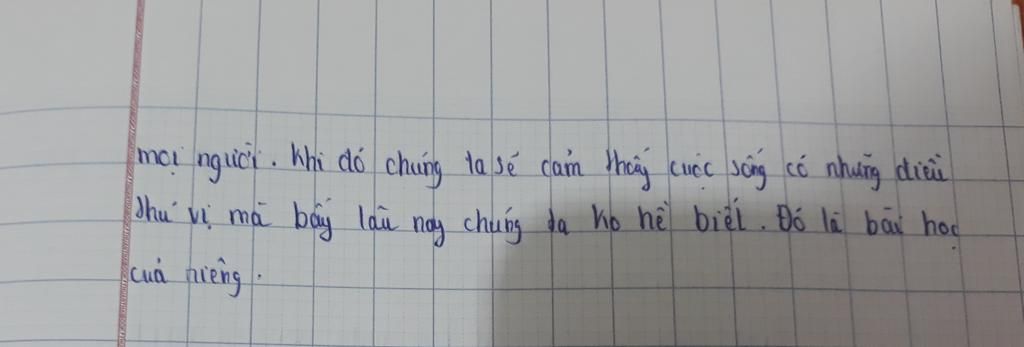 mọi người. Khi đó chúng ta sẽ cảm thấy cuộc sống có những điều
thú vị mà bấy lâu nay chúng ta ko hề biết. Đó là bài học
của riêng.